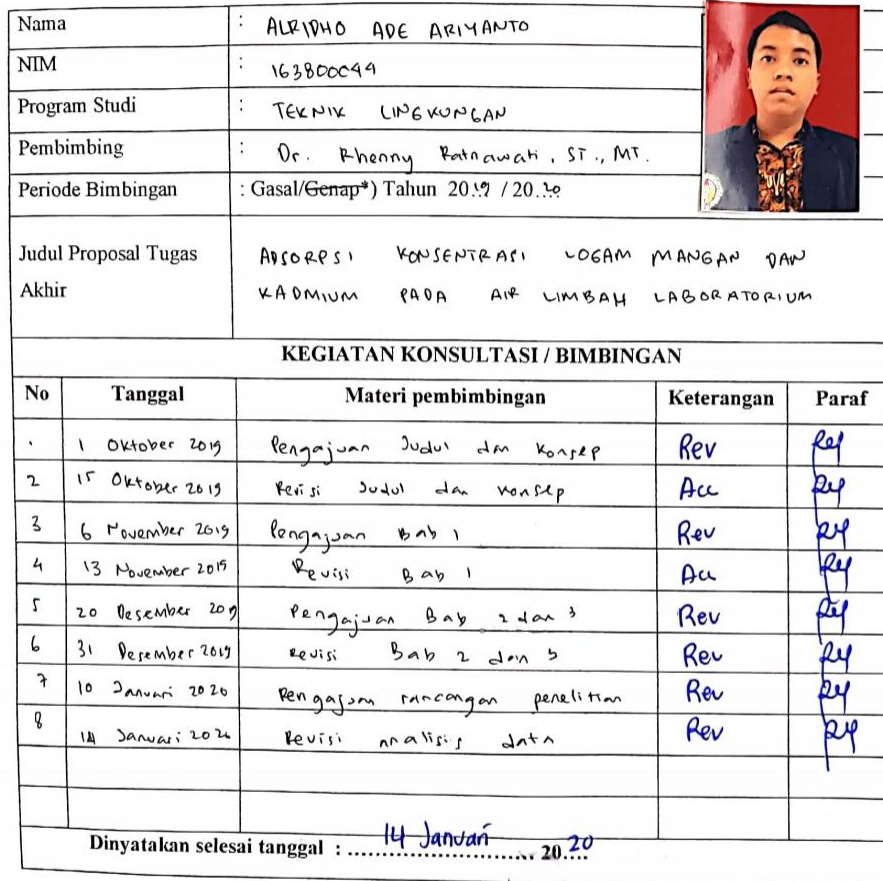 Nama : ALRIDHO ADE ARIYANTO
NIM : 163800044
Program Studi : TEKNIK LINGKUNGAN
Pembimbing : Dr. Rhenny Ratnawati, ST., MT.
Periode Bimbingan : Gasal/Genap*) Tahun 2019 / 2020
Judul Proposal Tugas Akhir ADSORPSI KONSENTRASI LOGAM MANGAN DAN
KADMIUM PADA AIR LIMBAH LABORATORIUM
KEGIATAN KONSULTASI / BIMBINGAN
No Tanggal Materi pembimbingan Keterangan Paraf
1 Oktober 2019 Pengajuan Judul dan Konsep Rev
2 15 Oktober 2019 Revisi Judul dan Konsep Acc
3 6 November 2019 Pengajuan Bab 1 Rev
4 13 November 2019 Revisi Bab 1 Acc
5 20 Desember 2019 Pengajuan Bab 2 dan 3 Rev
6 31 Desember 2019 Revisi Bab 2 dan 3 Rev
7 10 Januari 2020 Pengajuan rancangan penelitian Rev
8 14 Januari 2020 Revisi analisis data Rev
Dinyatakan selesai tanggal : 14 Januari 2020